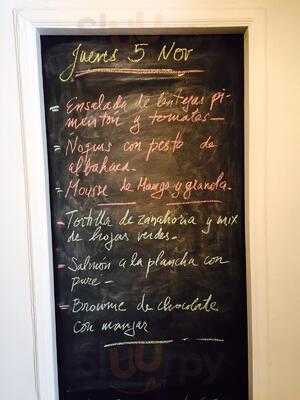 Jueves 5 Nov
= Ensalada de lentejas pi-
menton y tomates-
= Ñoquis con pesto de
albahaca-
- Mousse de Mango y granola-
- Tortilla de zanahoria y mix
de hojas verdes-
- Salmón a la plancha con
pure-
- Brownie de chocolate
con manjar